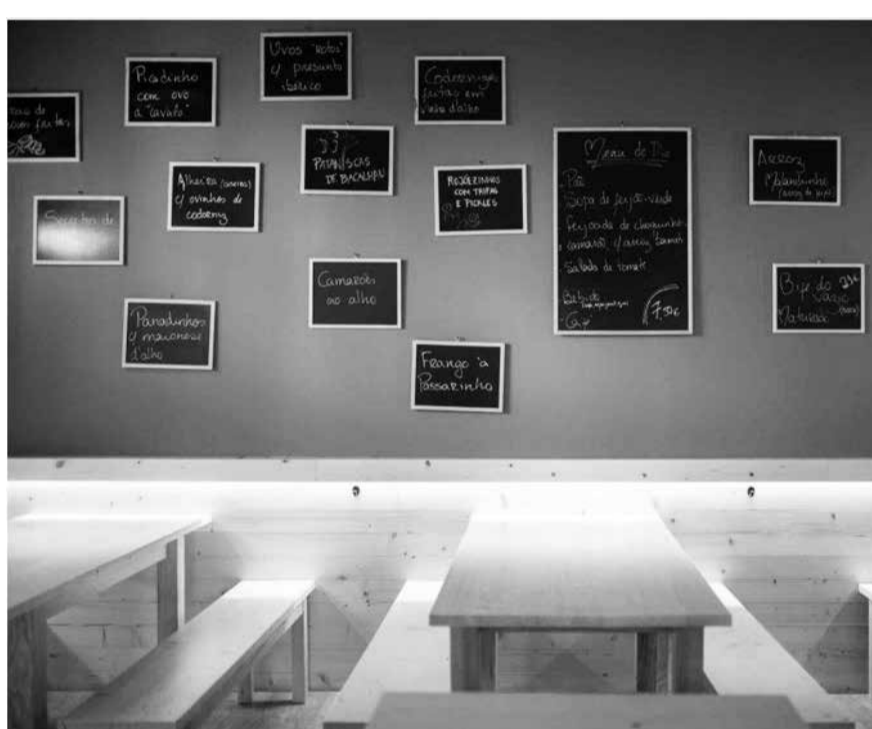 Picadinho
com ovo
a "cavalo"
Ovos "Rotos"
c/ presunto
ibérico
Codornizes
fritas em
vinho d'alho
de
fritas
Alheira
c/ ovinhos de
codorniz
PATANISCAS
DE BACALHAU
ROJÕEZINHOS
COM TRIPAS
E PICKLES
Secretos de
Camarões
ao alho
Panadinhos
c/ maionese
d'alho
Frango à
Passarinho
Menu do Dia
Pão
Sopa de feijão-verde
feijoada de choquinhos
camarão c/ arroz
salada de tomate
Bebida
7,50€
Arroz
Malandrinho
Bife do
Vazio
Maturado